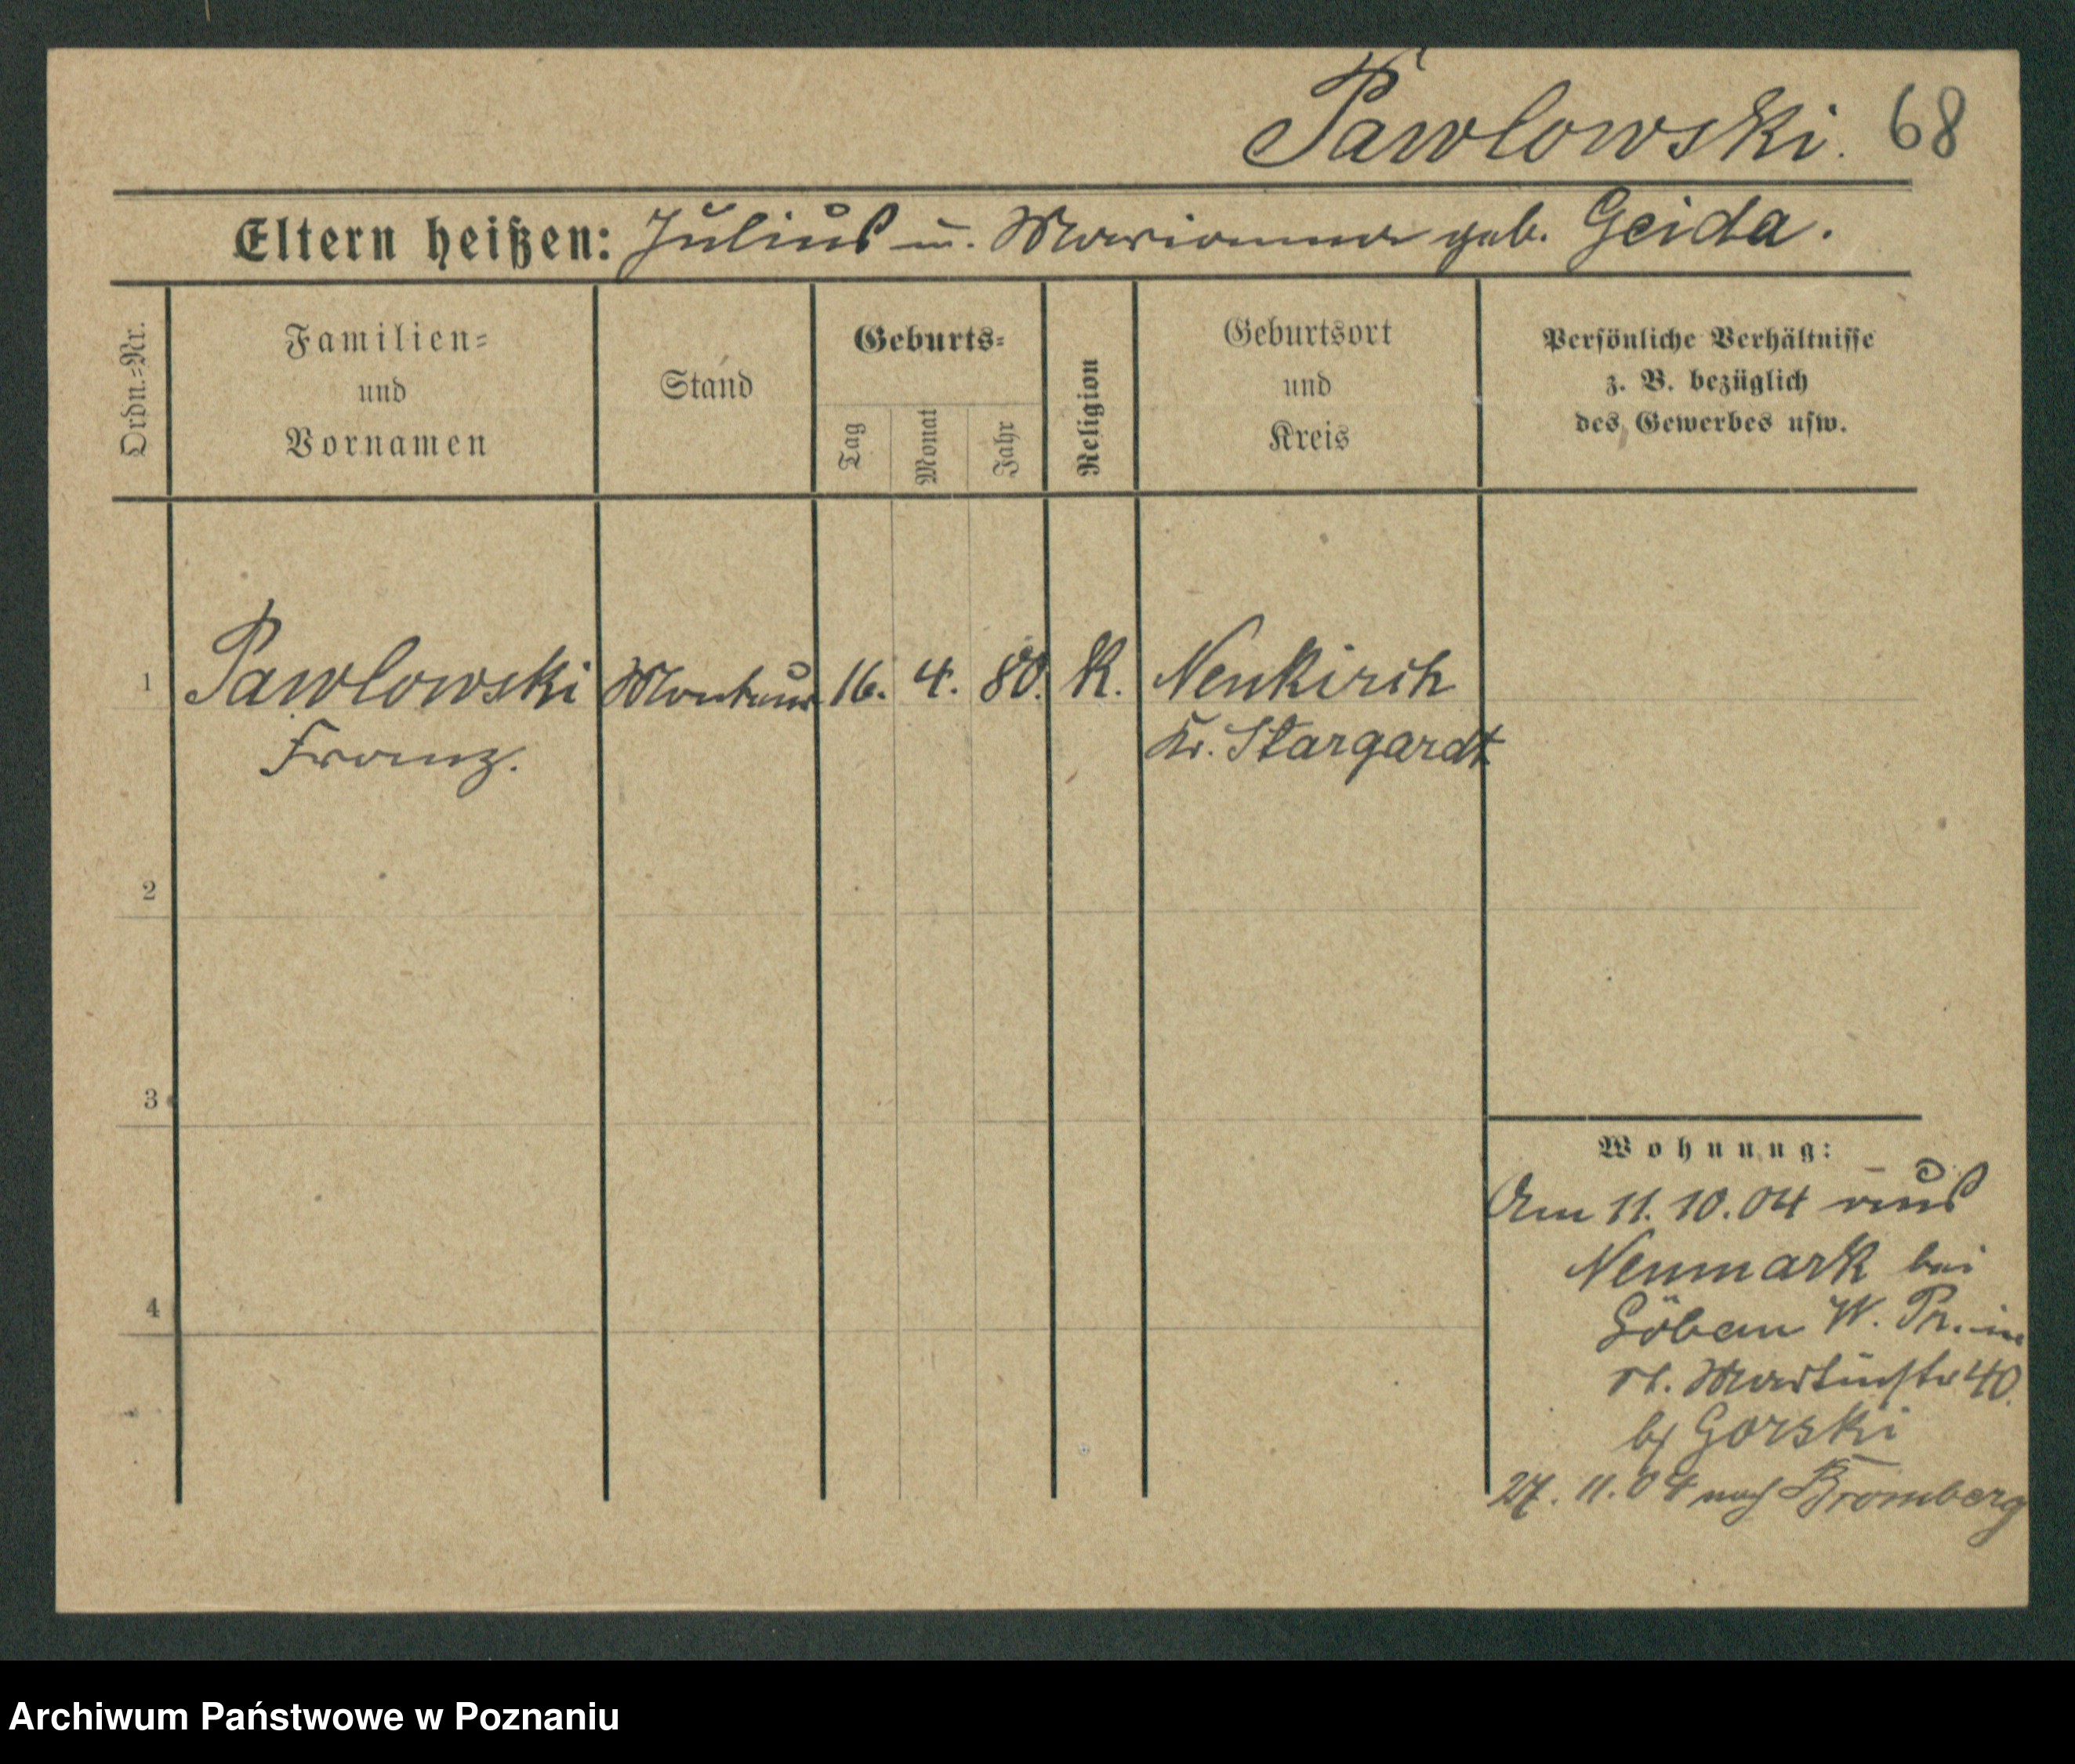 Pawlowski. 68
Eltern heißen: Julius u. Marianna geb. Geida.
Ordn.-Nr.
Familien=
und
Vornamen
Stand
Geburts=
Tag
Monat
Jahr
Religion
Geburtsort
und
Kreis
Persönliche Verhältnisse
z. B. bezüglich
des Gewerbes usw.
1 Pawlowski Monteur 16. 4. 80. K. Neukirch
Franz. Kr. Stargardt
2
3
4
Wohnung:
Am 11. 10. 04 aus
Neumark bei
Löbau W. Pr. in
St. Martinstr 40.
bei Gorski
27. 11. 04 nach Bromberg
Archiwum Państwowe w Poznaniu